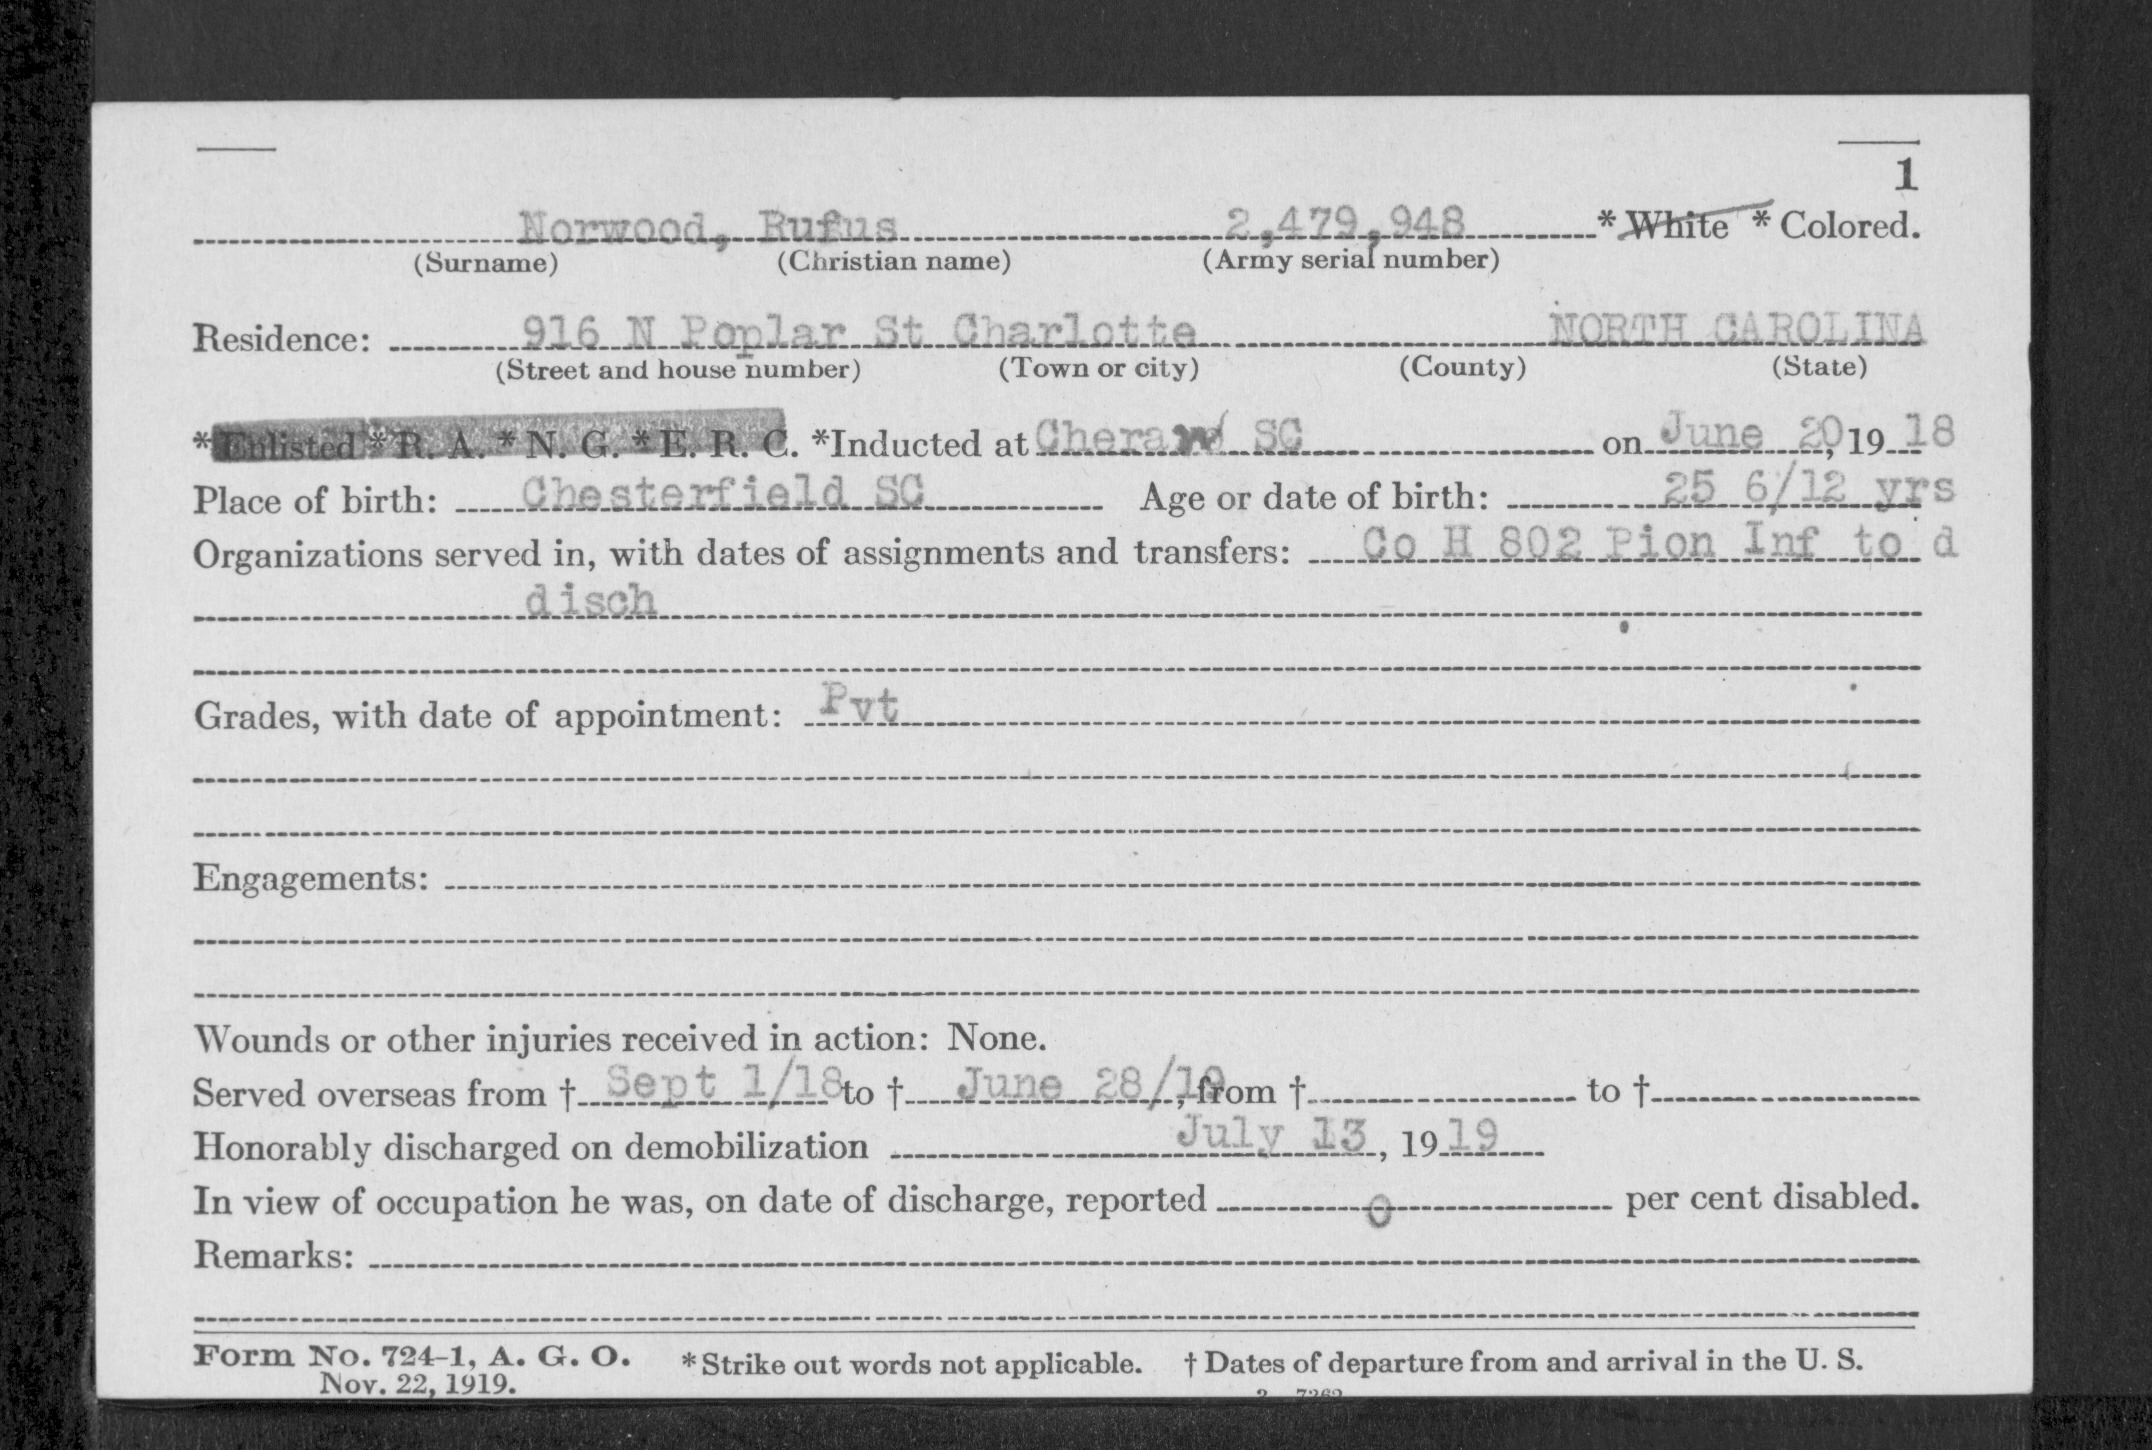 1
Norwood, Rufus 2,479,948 * White * Colored.
(Surname) (Christian name) (Army serial number)
Residence: 916 N Poplar St Charlotte NORTH CAROLINA
(Street and house number) (Town or city) (County) (State)
*Enlisted *R. A. *N. G. *E. R. C. *Inducted at Cheraw SC on June 20, 19 18
Place of birth: Chesterfield SC Age or date of birth: 25 6/12 yrs
Organizations served in, with dates of assignments and transfers: Co H 802 Pion Inf to d
disch
Grades, with date of appointment: Pvt
Engagements:
Wounds or other injuries received in action: None.
Served overseas from † Sept 1/18 to † June 28/19, from † to †
Honorably discharged on demobilization July 13, 19 19
In view of occupation he was, on date of discharge, reported 0 per cent disabled.
Remarks:
Form No. 724-1, A. G. O. *Strike out words not applicable. † Dates of departure from and arrival in the U. S.
Nov. 22, 1919.